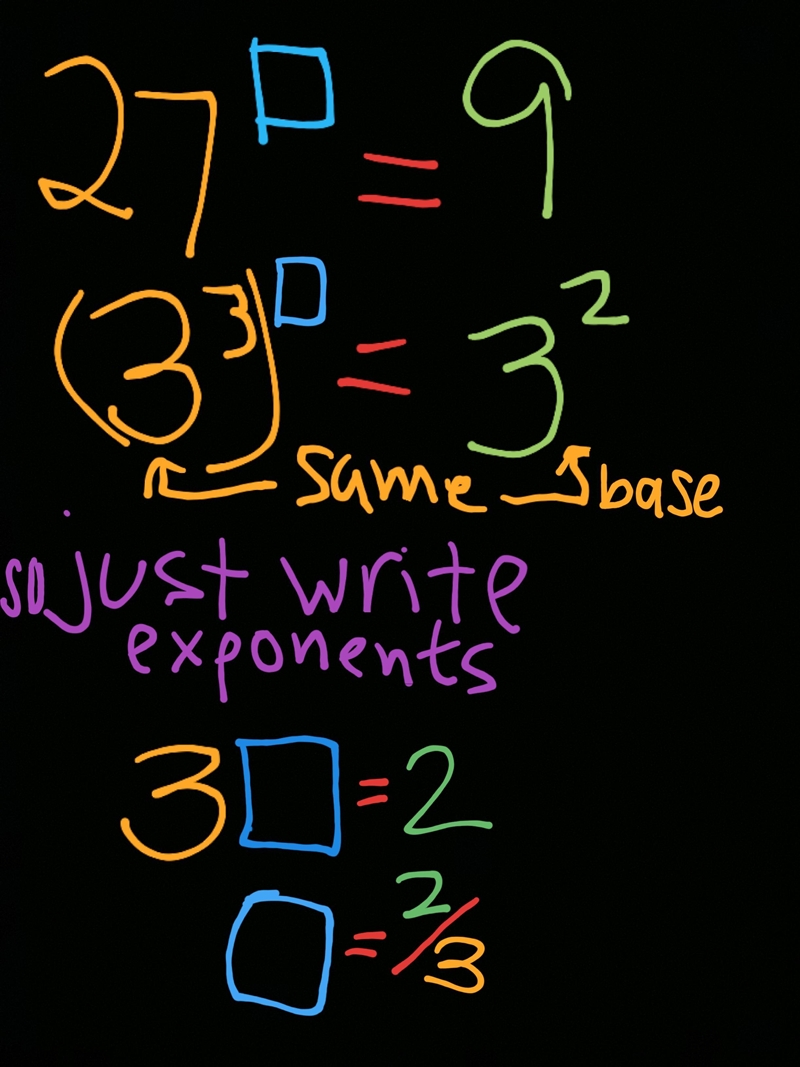 27^□ = 9
(3³)^□ = 3²
same base
so just write
exponents
3□ = 2
□ = 2/3